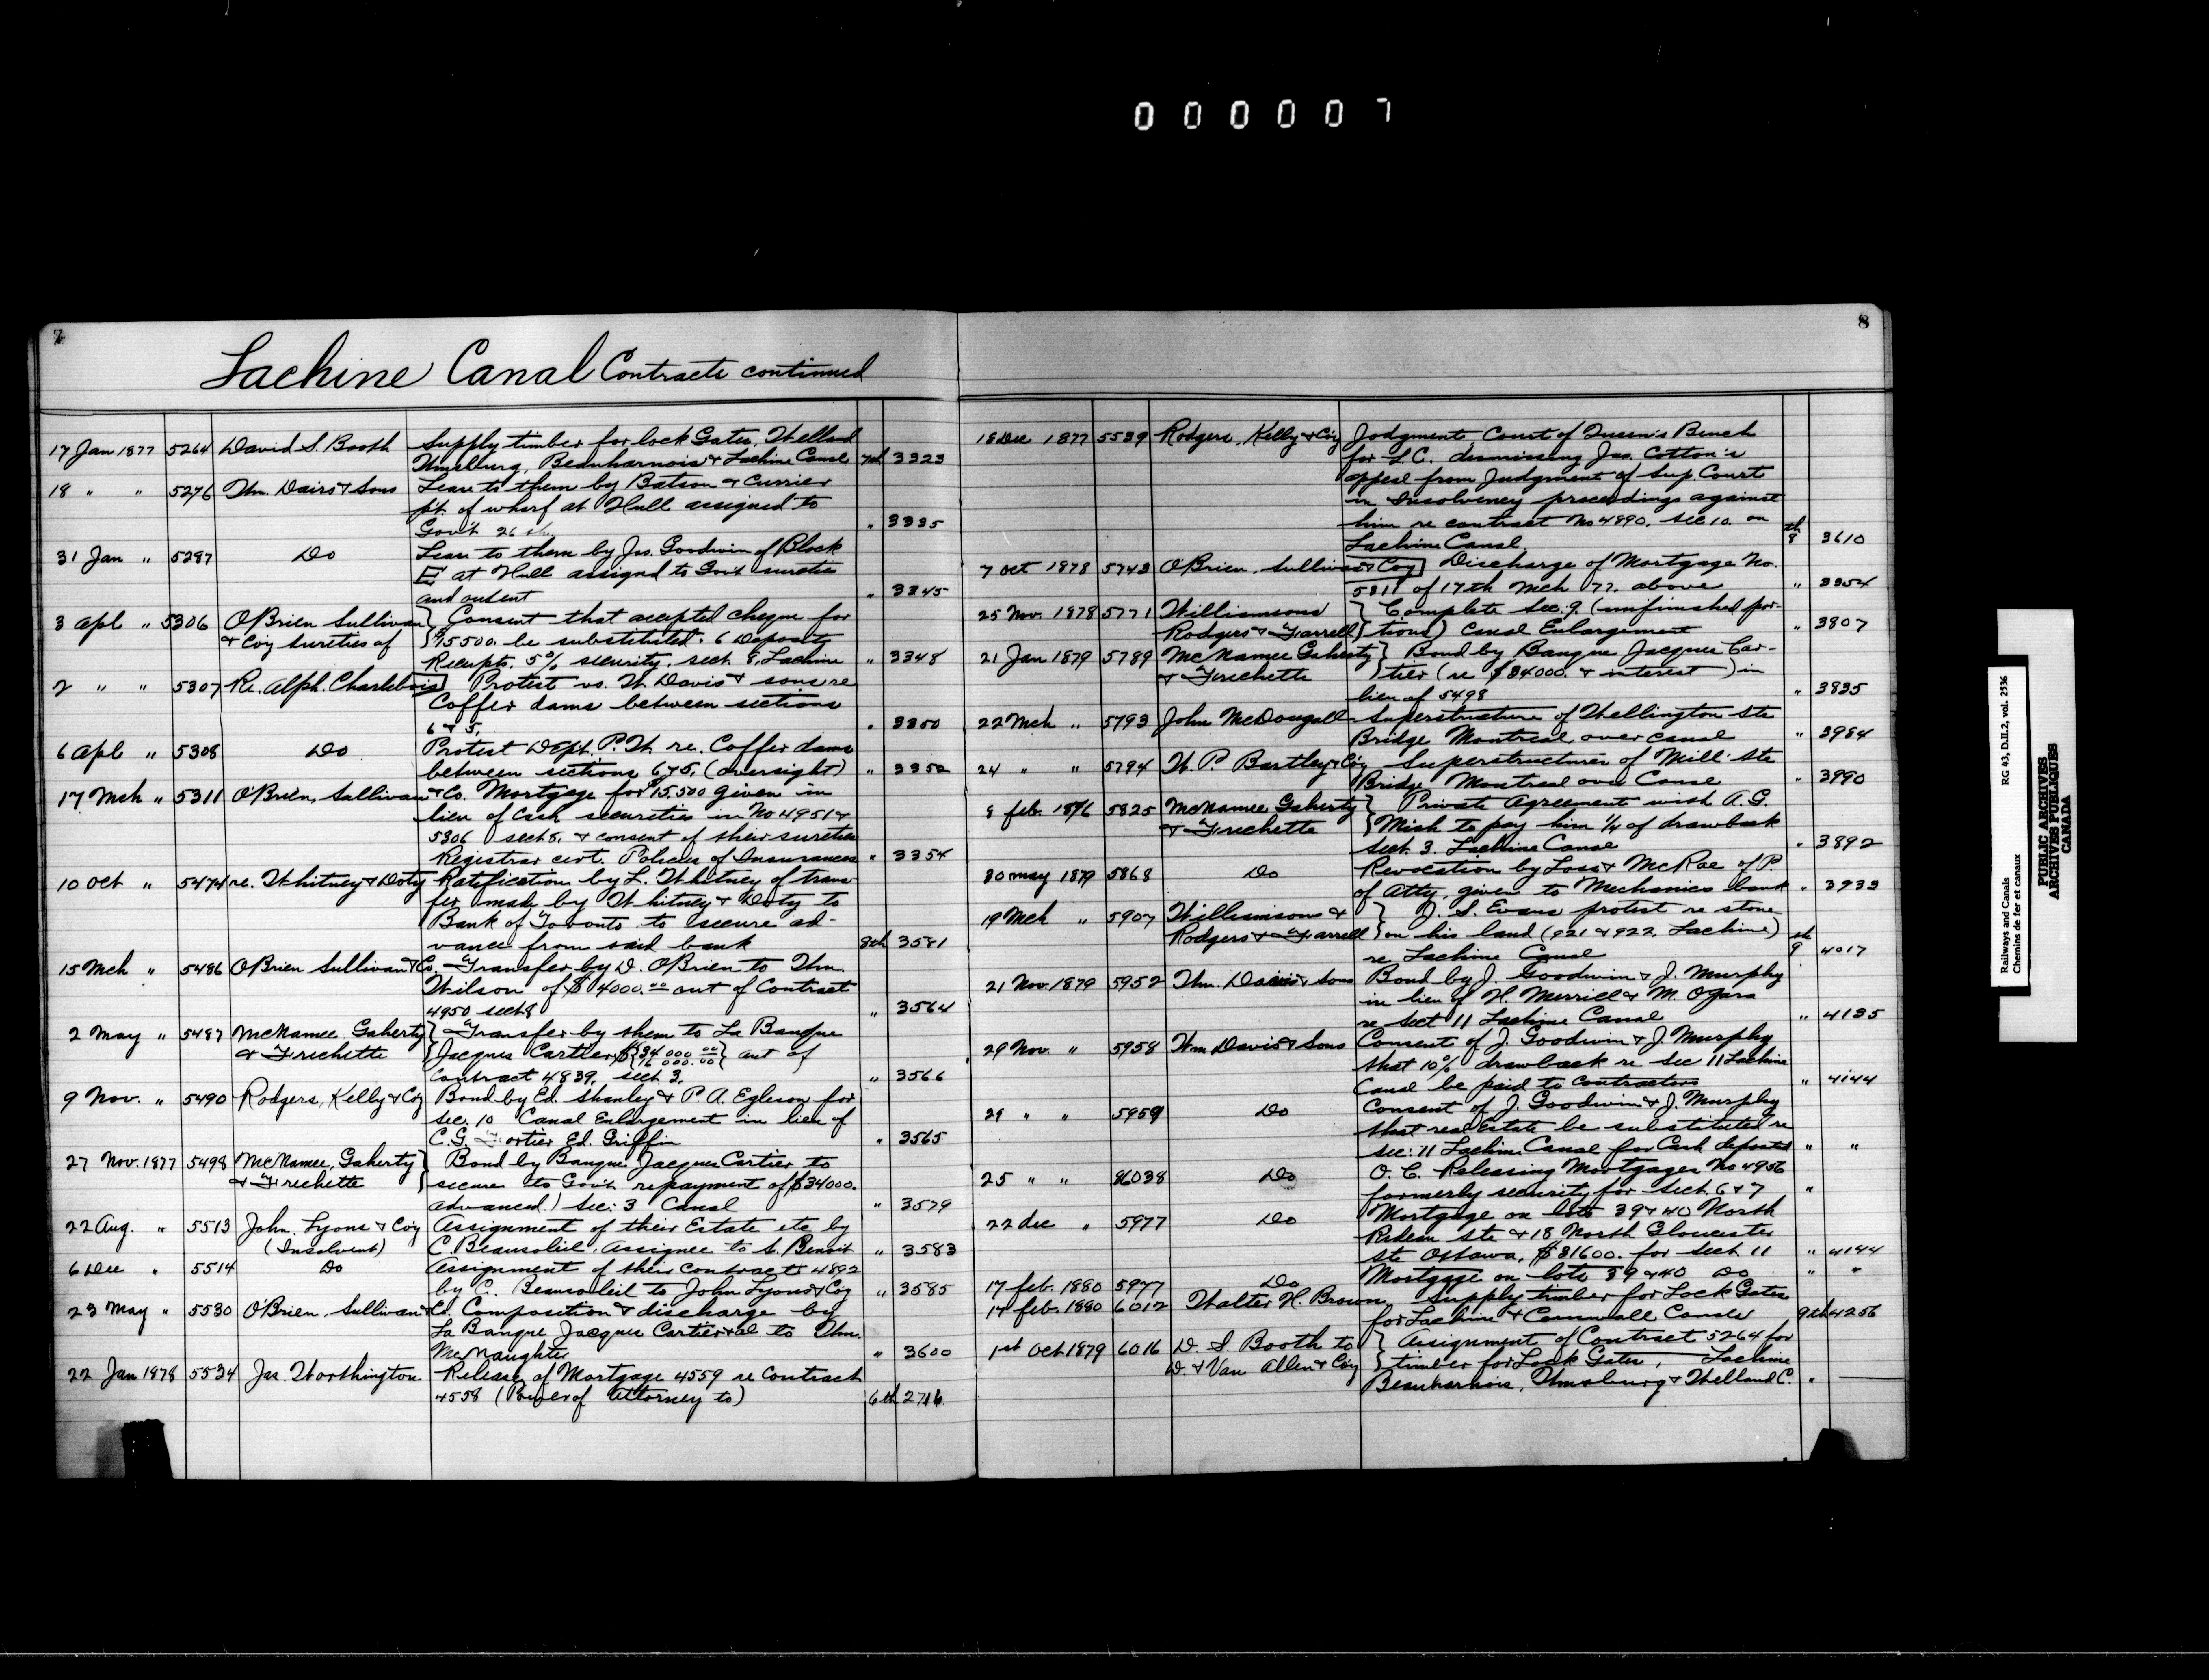 0 0 0 0 0 7
7
Lachine Canal Contracts continued
17 Jan 1877 5264 David S. Booth Supply timber for lock Gates, Welland
Wmsburg, Beauharnois & Lachine Canal 7th 3323
18 " " 5276 Wm. Davis & Sons Lease to them by Batson & Currier
pt. of wharf at Hull assigned to
Gov't 26 " 3335
31 Jan " 5287 Do Lease to them by Jas. Goodwin of Block
E at Hull assigned to Gov't sureties
and consent " 3345
3 Apl " 5306 OBrien Sullivan } Consent that accepted cheque for
& Coy sureties of } $15500. be substituted. 6 Deposit
Receipts. 5% security. sect. 8. Lachine " 3348
2 " " 5307 Re. Alph. Charlebois Protest vs. W. Davis & sons re
Coffer dams between sections
6 & 5. " 3350
6 Apl " 5308 Do Protest Dept. P.W. re. Coffer dams
between sections 6 & 5. (oversight) " 3352
17 Mch " 5311 OBrien, Sullivan & Co. Mortgage for $15,500 given in
lieu of Cash securities in No 4951 &
5306 sect 8. & consent of their sureties
Registrar cert. Policies of Insurances " 3354
10 Oct " 5474 re. Whitney & Doty Ratification by L. Whitney of trans
fer made by Whitney & Doty to
Bank of Toronto to secure ad-
vance from said bank 8th 3581
15 Mch " 5486 OBrien Sullivan & Co. Transfer by D. OBrien to Wm.
Wilson of $4000.00 out of Contract
4950 sect 8 " 3564
2 May " 5487 McNamee, Gaherty } Transfer by them to La Banque
& Frechette } Jacques Cartier $ {34 000 00 / 16 000. 00} out of
Contract 4839. sect. 3. " 3566
9 Nov. " 5490 Rodgers, Kelly & Coy Bond by Ed. Shanley & P. A. Egleson for
sec. 10 Canal Enlargement in lieu of
C.G. Fortier Ed. Griffin " 3565
27 Nov. 1877 5498 McNamee, Gaherty } Bond by Banque Jacques Cartier to
& Frechette } secure to Gov't repayment of $34000.
advanced.) sec: 3 Canal " 3579
22 Aug. " 5513 John Lyons & Coy Assignment of their Estate etc by
(Insolvent) C. Beausoleil, assignee to S. Benoit " 3583
6 Dec " 5514 Do Assignment of their contracts 4892
by C. Beausoleil to John Lyons & Coy " 3585
23 May " 5530 O'Brien, Sullivan & Co. Composition & discharge by
La Banque Jacques Cartier & al to Wm.
McNaughter " 3600
22 Jan 1878 5534 Jas. Worthington Release of Mortgage 4559 re Contract
4558 (Power of Attorney to) 6th 2716
8
18 Dec 1877 5539 Rodgers, Kelly & Coy Judgment, Court of Queen's Bench
for L.C. dismissing Jas. Cotton's
appeal from Judgment of Sup. Court
in Insolvency proceedings against
him re contract No 4890. sec 10. on
Lachine Canal. 8th 3610
7 Oct 1878 5743 OBrien, Sullivan & Coy Discharge of Mortgage No.
5311 of 17th Mch 77. above " 3354
25 Nov. 1878 5771 Williamsons } Complete Sec. 9. (unfinished por-
Rodgers & Farrell { tions) Canal Enlargement " 3807
21 Jan 1879 5789 McNamee Gaherty } Bond by Banque Jacques Car-
& Frechette } tier (re $34000. & interest) in
lieu of 5498 " 3835
22 Mch " 5793 John McDougall Superstructure of Wellington Ste
Bridge Montreal over canal " 3984
24 " " 5794 W. P. Bartley & Coy Superstructures of Mill Ste
Bridge Montreal over Canal " 3990
8 feb. 1876 5825 McNamee Gaherty } Private Agreement with A.G.
& Frechette } Nish to pay him 1/4 of drawback
sect. 3. Lachine Canal " 3892
30 May 1879 5868 Do Revocation by Loss & McRae of P.
of Atty, given to Mechanics bank " 3933
19 Mch " 5907 Williamsons & } J. S. Evans protest re stone
Rodgers & Farrell } on his land (921 & 922. Lachine)
re Lachine Canal 9th 4017
21 Nov. 1879 5952 Wm. Davis & Sons Bond by J. Goodwin & J. Murphy
in lieu of H. Merrill & M. OGara
re sect 11 Lachine Canal " 4135
29 Nov. " 5958 Wm Davis & Sons Consent of J. Goodwin & J. Murphy
that 10% drawback re sec 11 Lachine
Canal be paid to contractors " 4144
29 " " 5959 Do Consent of J. Goodwin & J. Murphy
that real Estate be substituted re
sec: 11 Lachine Canal for Cash deposited " "
25 " " 6038 Do O.C. Releasing Mortgages No 4956
formerly security for sect. 6 & 7 "
22 Dec " 5977 Do Mortgage on lots 39 & 40 North
Rideau Ste & 18 North Gloucester
Ste Ottawa, $31600. for sect. 11 " 4144
17 feb. 1880 5977 Do Mortgage on lots 39 & 40 Do " "
14 feb. 1880 6012 Walter H. Brown Supply timber for Lock Gates
for Lachine & Cornwall Canals 9th 4256
1st Oct 1879 6016 D. S. Booth to } Assignment of Contract 5264 for
D. & Van Allen & Coy } timber for Lock Gates, Lachine
Beauharnois, Wmsburg & Welland C. "
Railways and Canals RG 43, D.II.2, vol. 2536
Chemins de fer et canaux
PUBLIC ARCHIVES
ARCHIVES PUBLIQUES
CANADA